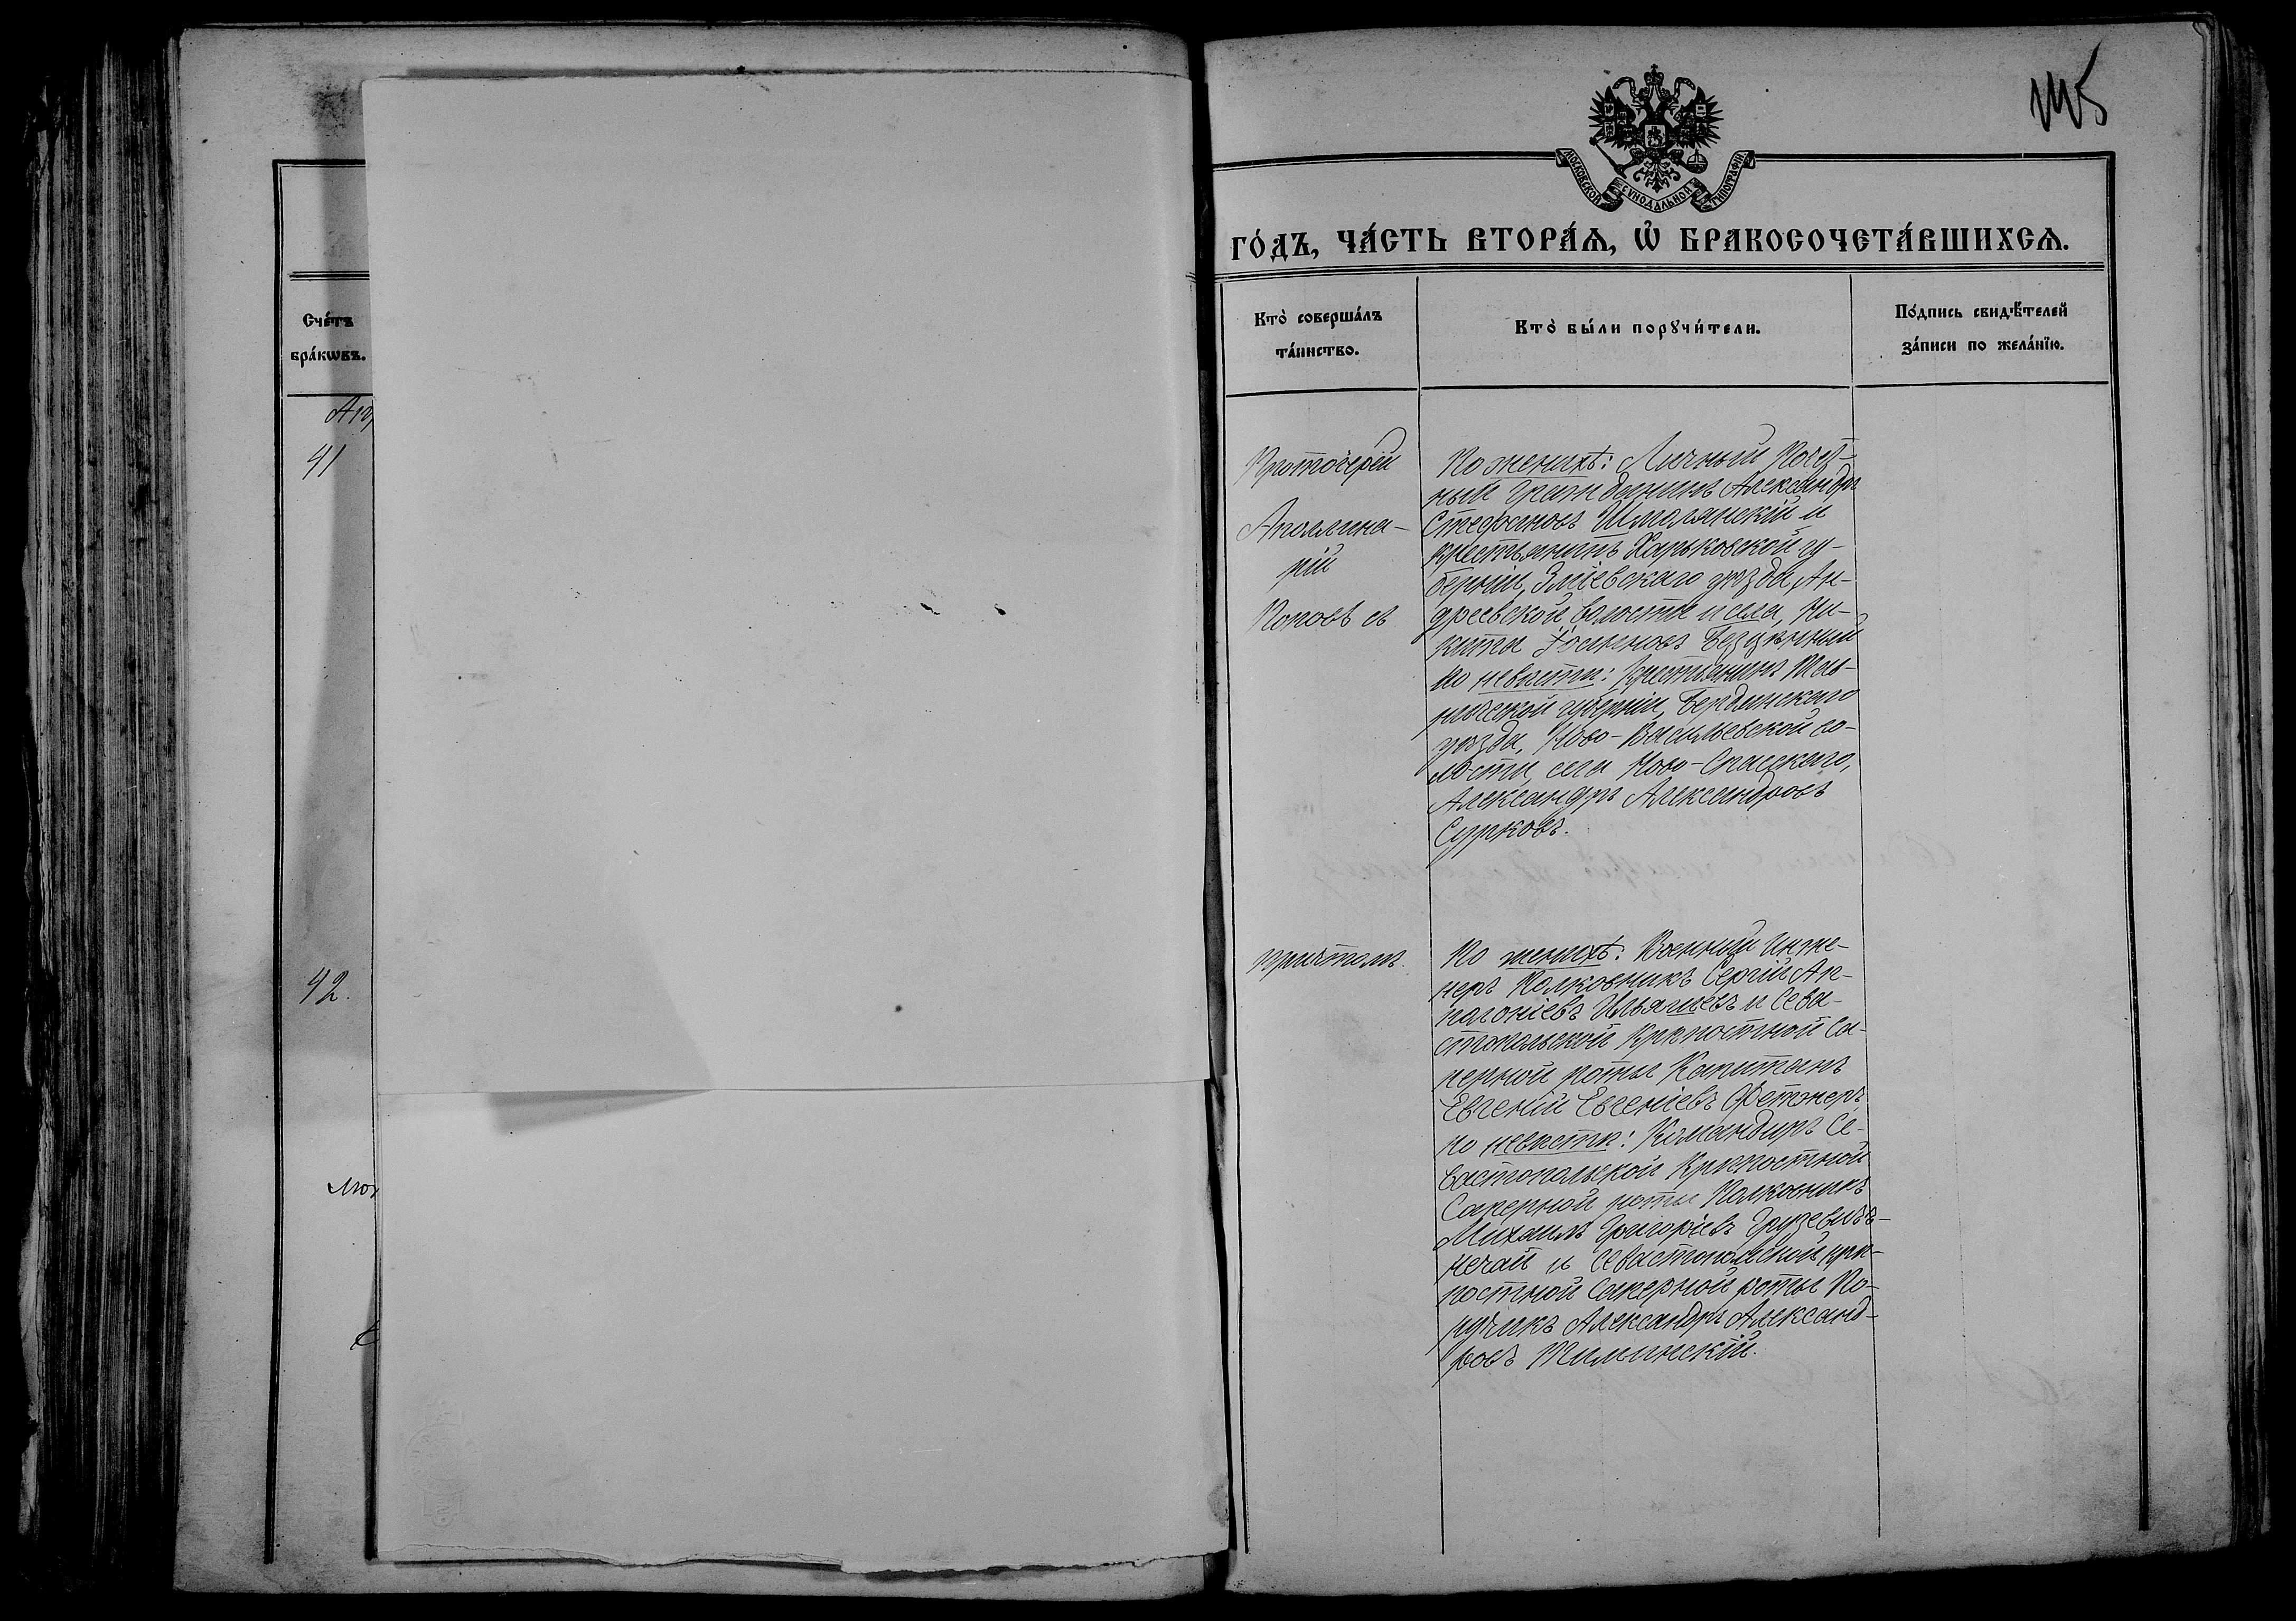 Счéтъ
брáкѡвъ.
41
42.
115
МОСКОВСКОЙ СѴНОДАЛЬНОЙ ТИПОГРАФІИ.
ГÓДЪ, ЧÁСТЬ ВТОРÁѦ, Ѽ БРАКОСОЧЕТÁВШИХСѦ.
Ктò совершáлъ
тáинство.
Ктò бы́ли порꙋчи́тели.
Пóдпись свидѣ́телей
зáписи по желáнїю.
Протоіерей
Аполлина-
рій
Поповъ съ
По женихѣ: Личный Почет-
ный гражданинъ Александръ
Стефановъ Шмолянскій и
крестьянинъ Харьковской гу-
берніи, Зміевскаго уѣзда, Ан-
дреевской волости и села, Ни-
кита Іоанновъ Безцѣнный
по невѣстѣ: Крестьянинъ Тав-
рической губерніи, Бердянскаго
уѣзда, Ново-Васильевской во-
лости, села Ново-Спасскаго,
Александръ Александровъ
Сурковъ.
причтомъ.
По женихѣ: Военный Инже-
неръ Полковникъ Сергій Ап-
полоніевъ Ильяшевъ и Сева-
стопольской Крѣпостной Са-
перной роты Капитанъ
Евгеній Евгеніевъ Фетжеръ
по невѣстѣ: Командиръ Се-
вастопольской Крѣпостной
Саперной роты Полковникъ
Михаилъ Григоріевъ Грузевичъ-
Нечай и Севастопольской крѣ-
постной Саперной роты По-
ручикъ Александръ Александ-
ровъ Тилинскій.